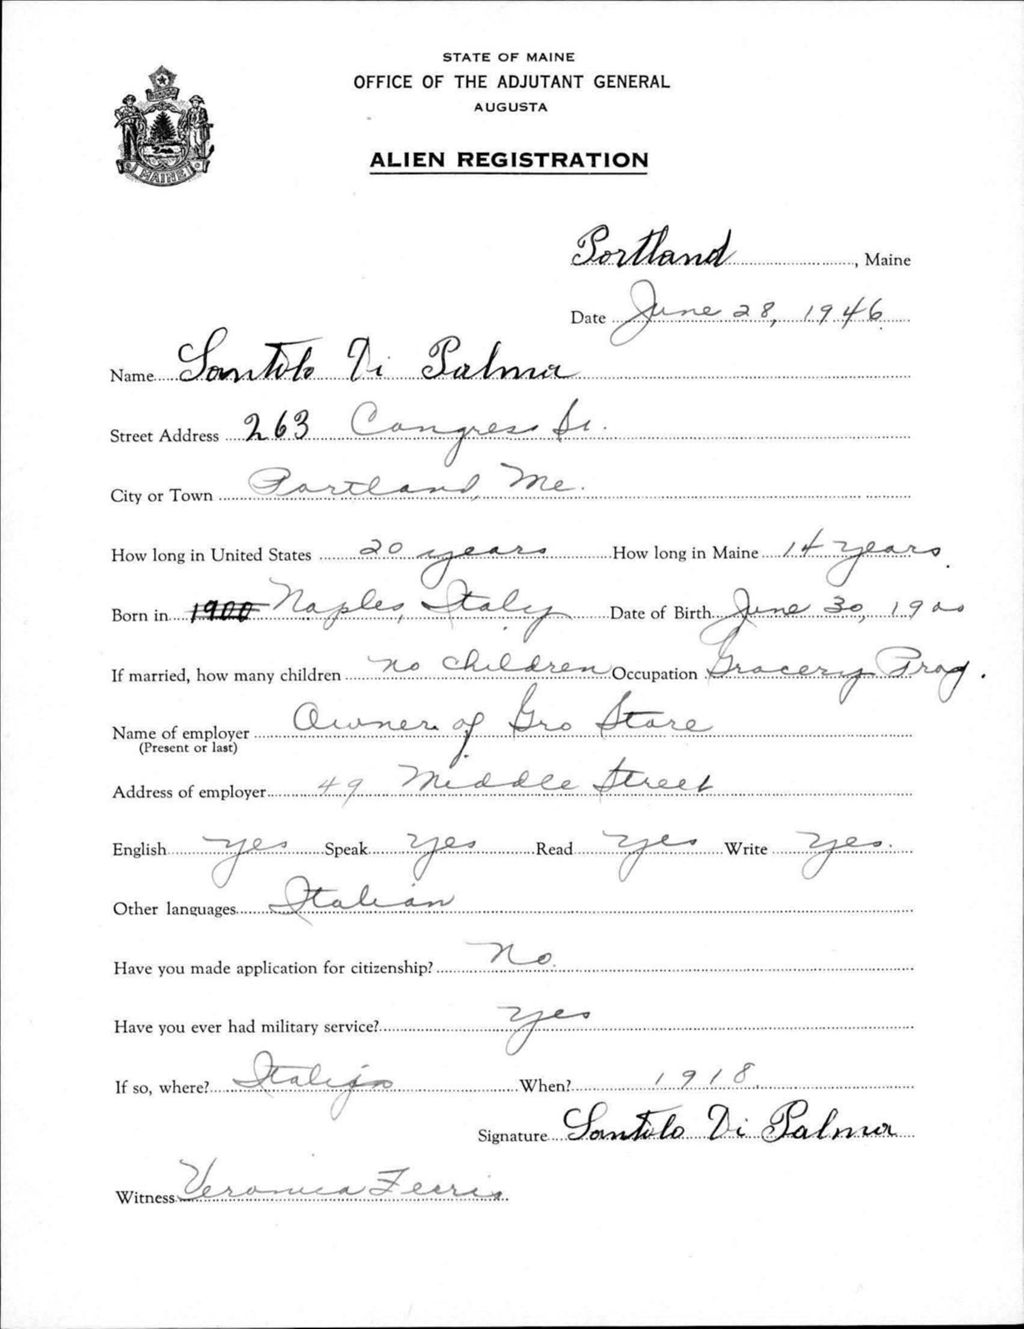 STATE OF MAINE
OFFICE OF THE ADJUTANT GENERAL
AUGUSTA
ALIEN REGISTRATION
MAINE
Portland, Maine
Date June 28, 1946
Name Santolo Di Palma
Street Address 263 Congress St.
City or Town Portland, Me.
How long in United States 20 years How long in Maine 14 years
Born in 1900 Naples, Italy Date of Birth June 30, 1900
If married, how many children no children Occupation Grocery Prop.
Name of employer Owner of Gro Store
(Present or last)
Address of employer 49 Middle Street
English yes Speak yes Read yes Write yes.
Other languages Italian
Have you made application for citizenship? No.
Have you ever had military service? yes
If so, where? Italian When? 1918.
Signature Santolo Di Palma
Witness Veronica Ferris